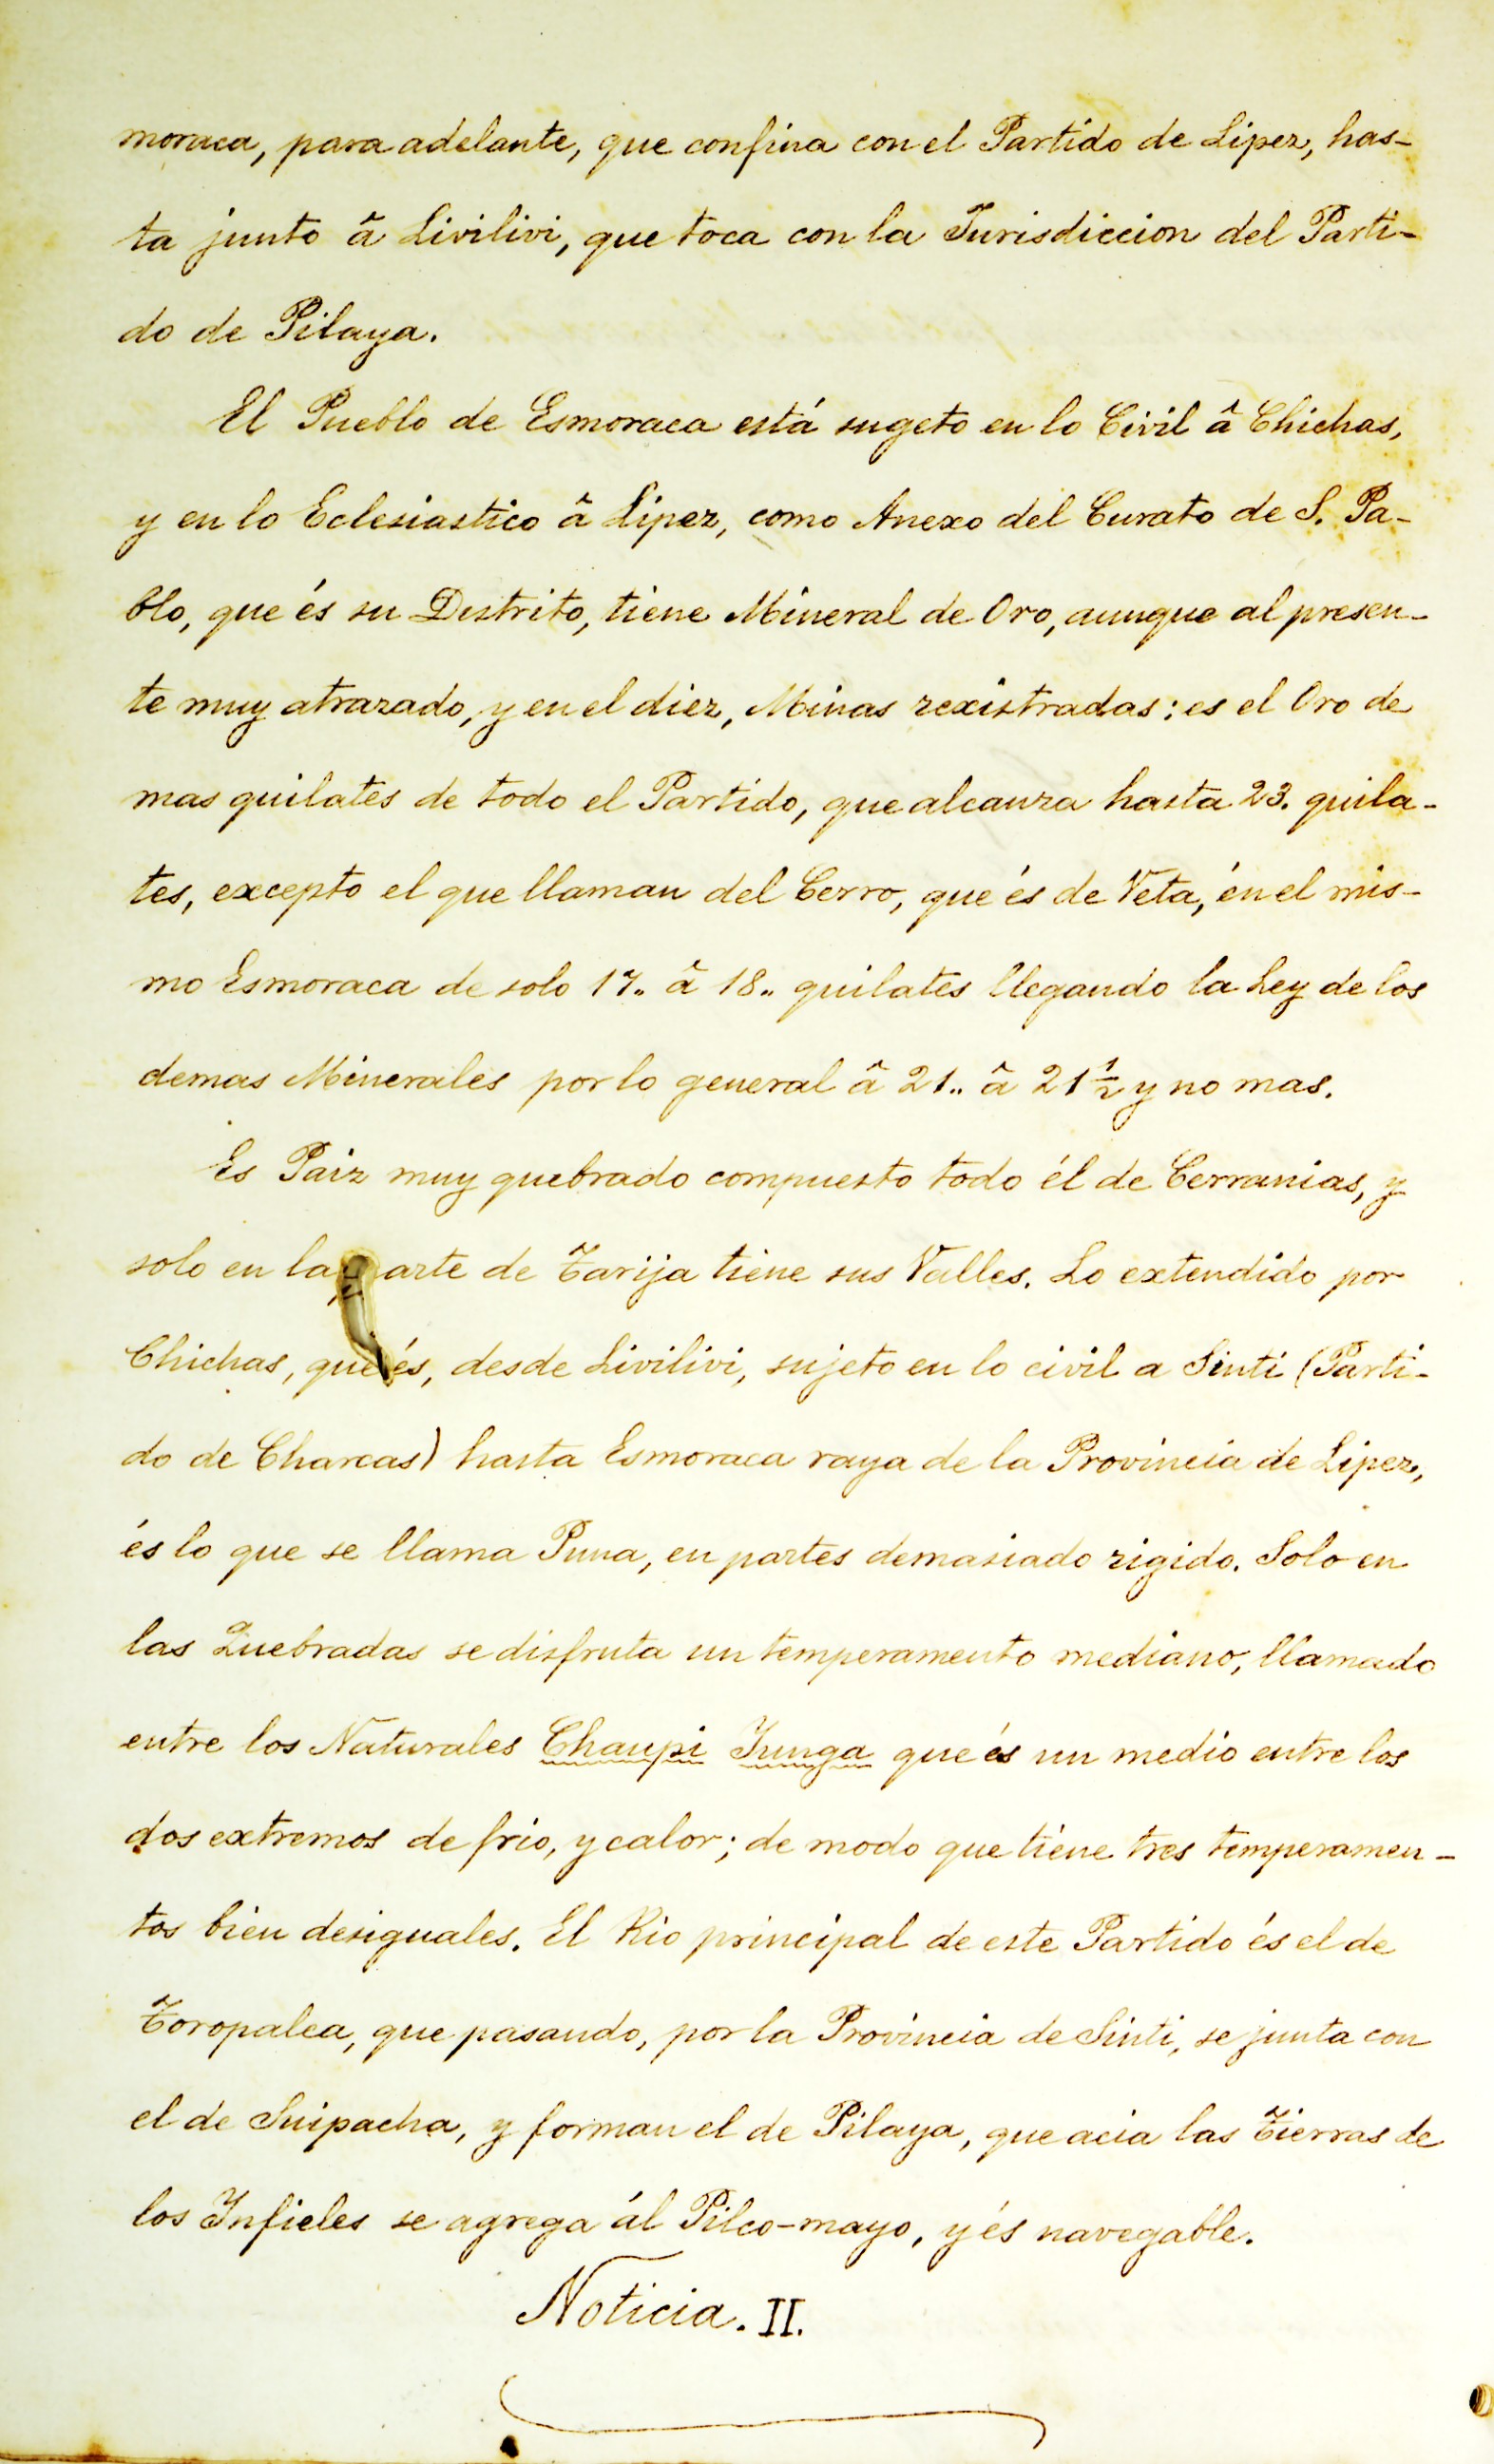 moraca, para adelante, que confina con el Partido de Lipez, has-
ta junto â Livilivi, que toca con la Jurisdiccion del Parti-
do de Pilaya.
El Pueblo de Esmoraca está sugeto en lo Civil â Chichas,
y en lo Eclesiastico â Lipez, como Anexo del Curato de S. Pa-
blo, que és su Distrito, tiene Mineral de Oro, aunque al presen-
te muy atrazado, y en el diez, Minas rexistradas: es el Oro de
mas quilates de todo el Partido, que alcanza hasta 23. quila-
tes, excepto el que llaman del Cerro, que és de Veta, én el mis-
mo Esmoraca de solo 17.. â 18.. quilates llegando la Ley de los
demas Minerales por lo general â 21.. â 21 ½ y no mas.
Es Paiz muy quebrado compuesto todo él de Cerranias, y
solo en la parte de Tarija tiene sus Valles. Lo extendido por
Chichas, que és, desde Livilivi, sujeto en lo civil a Sinti (Parti-
do de Charcas) hasta Esmoraca raya de la Provincia de Lipez,
és lo que se llama Puna, en partes demasiado rigido. Solo en
las Quebradas se disfruta un temperamento mediano, llamado
entre los Naturales Chaupi Yunga que és un medio entre los
dos extremos de frio, y calor; de modo que tiene tres temperamen-
tos bien desiguales. El Rio principal de este Partido és el de
Toropalca, que pasando, por la Provincia de Sinti, se junta con
el de Suipacha, y forman el de Pilaya, que acia las Tierras de
los Ynfieles se agrega ál Pilco-mayo, y és navegable.
Noticia. II.